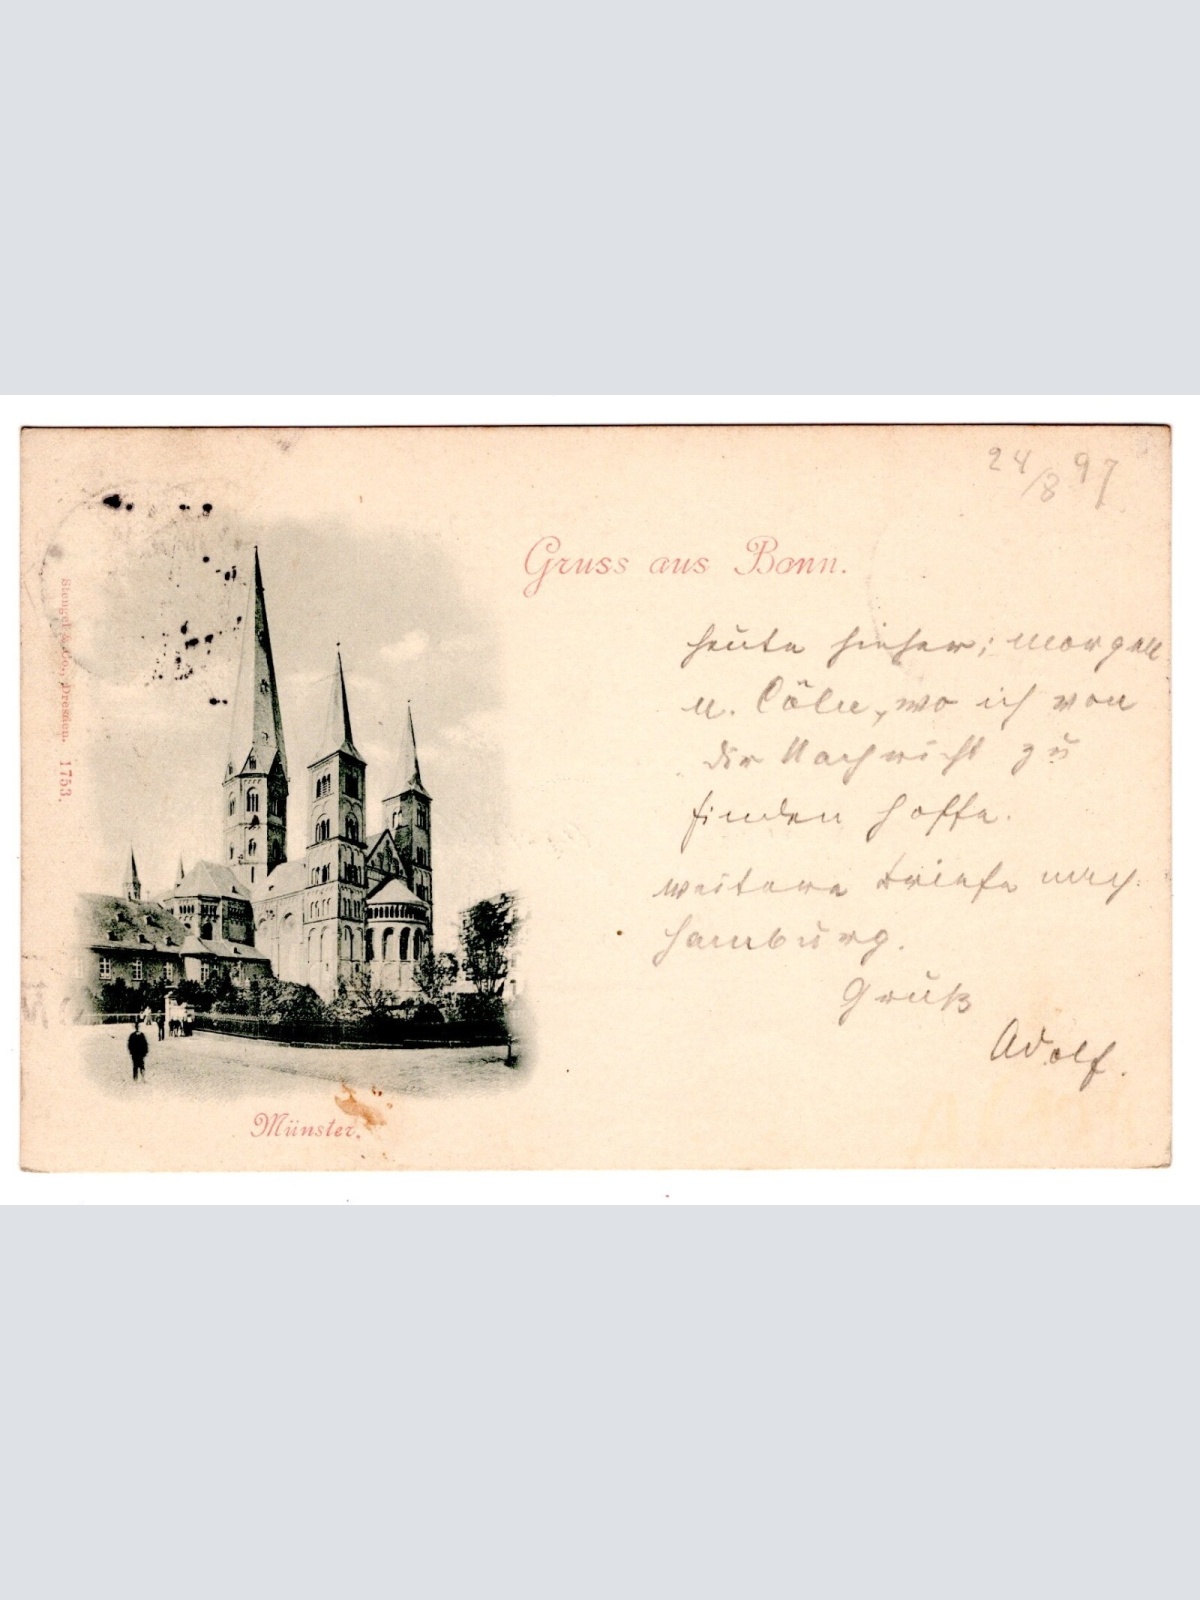 24/8 97
Gruss aus Bonn.
heute hieher; morgen
n. Cöln, wo ich von
dir Nachricht zu
finden hoffe.
weitere Briefe nach
Hamburg.
Gruß
Adolf.
Münster.
Stengel & Co., Dresden. 1753.